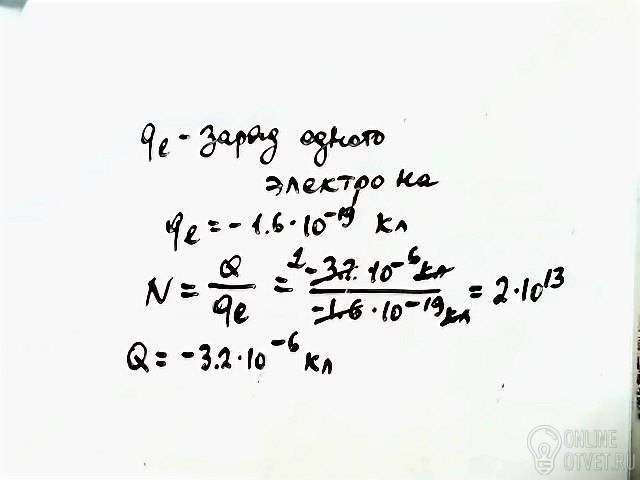 qe - заряд одного
электрона
qe = - 1.6 · 10⁻¹⁹ кл
N = Q/qe = -3.2 · 10⁻⁶ кл / -1.6 · 10⁻¹⁹ кл = 2 · 10¹³
Q = -3.2 · 10⁻⁶ кл
ONLINE
OTVET.RU